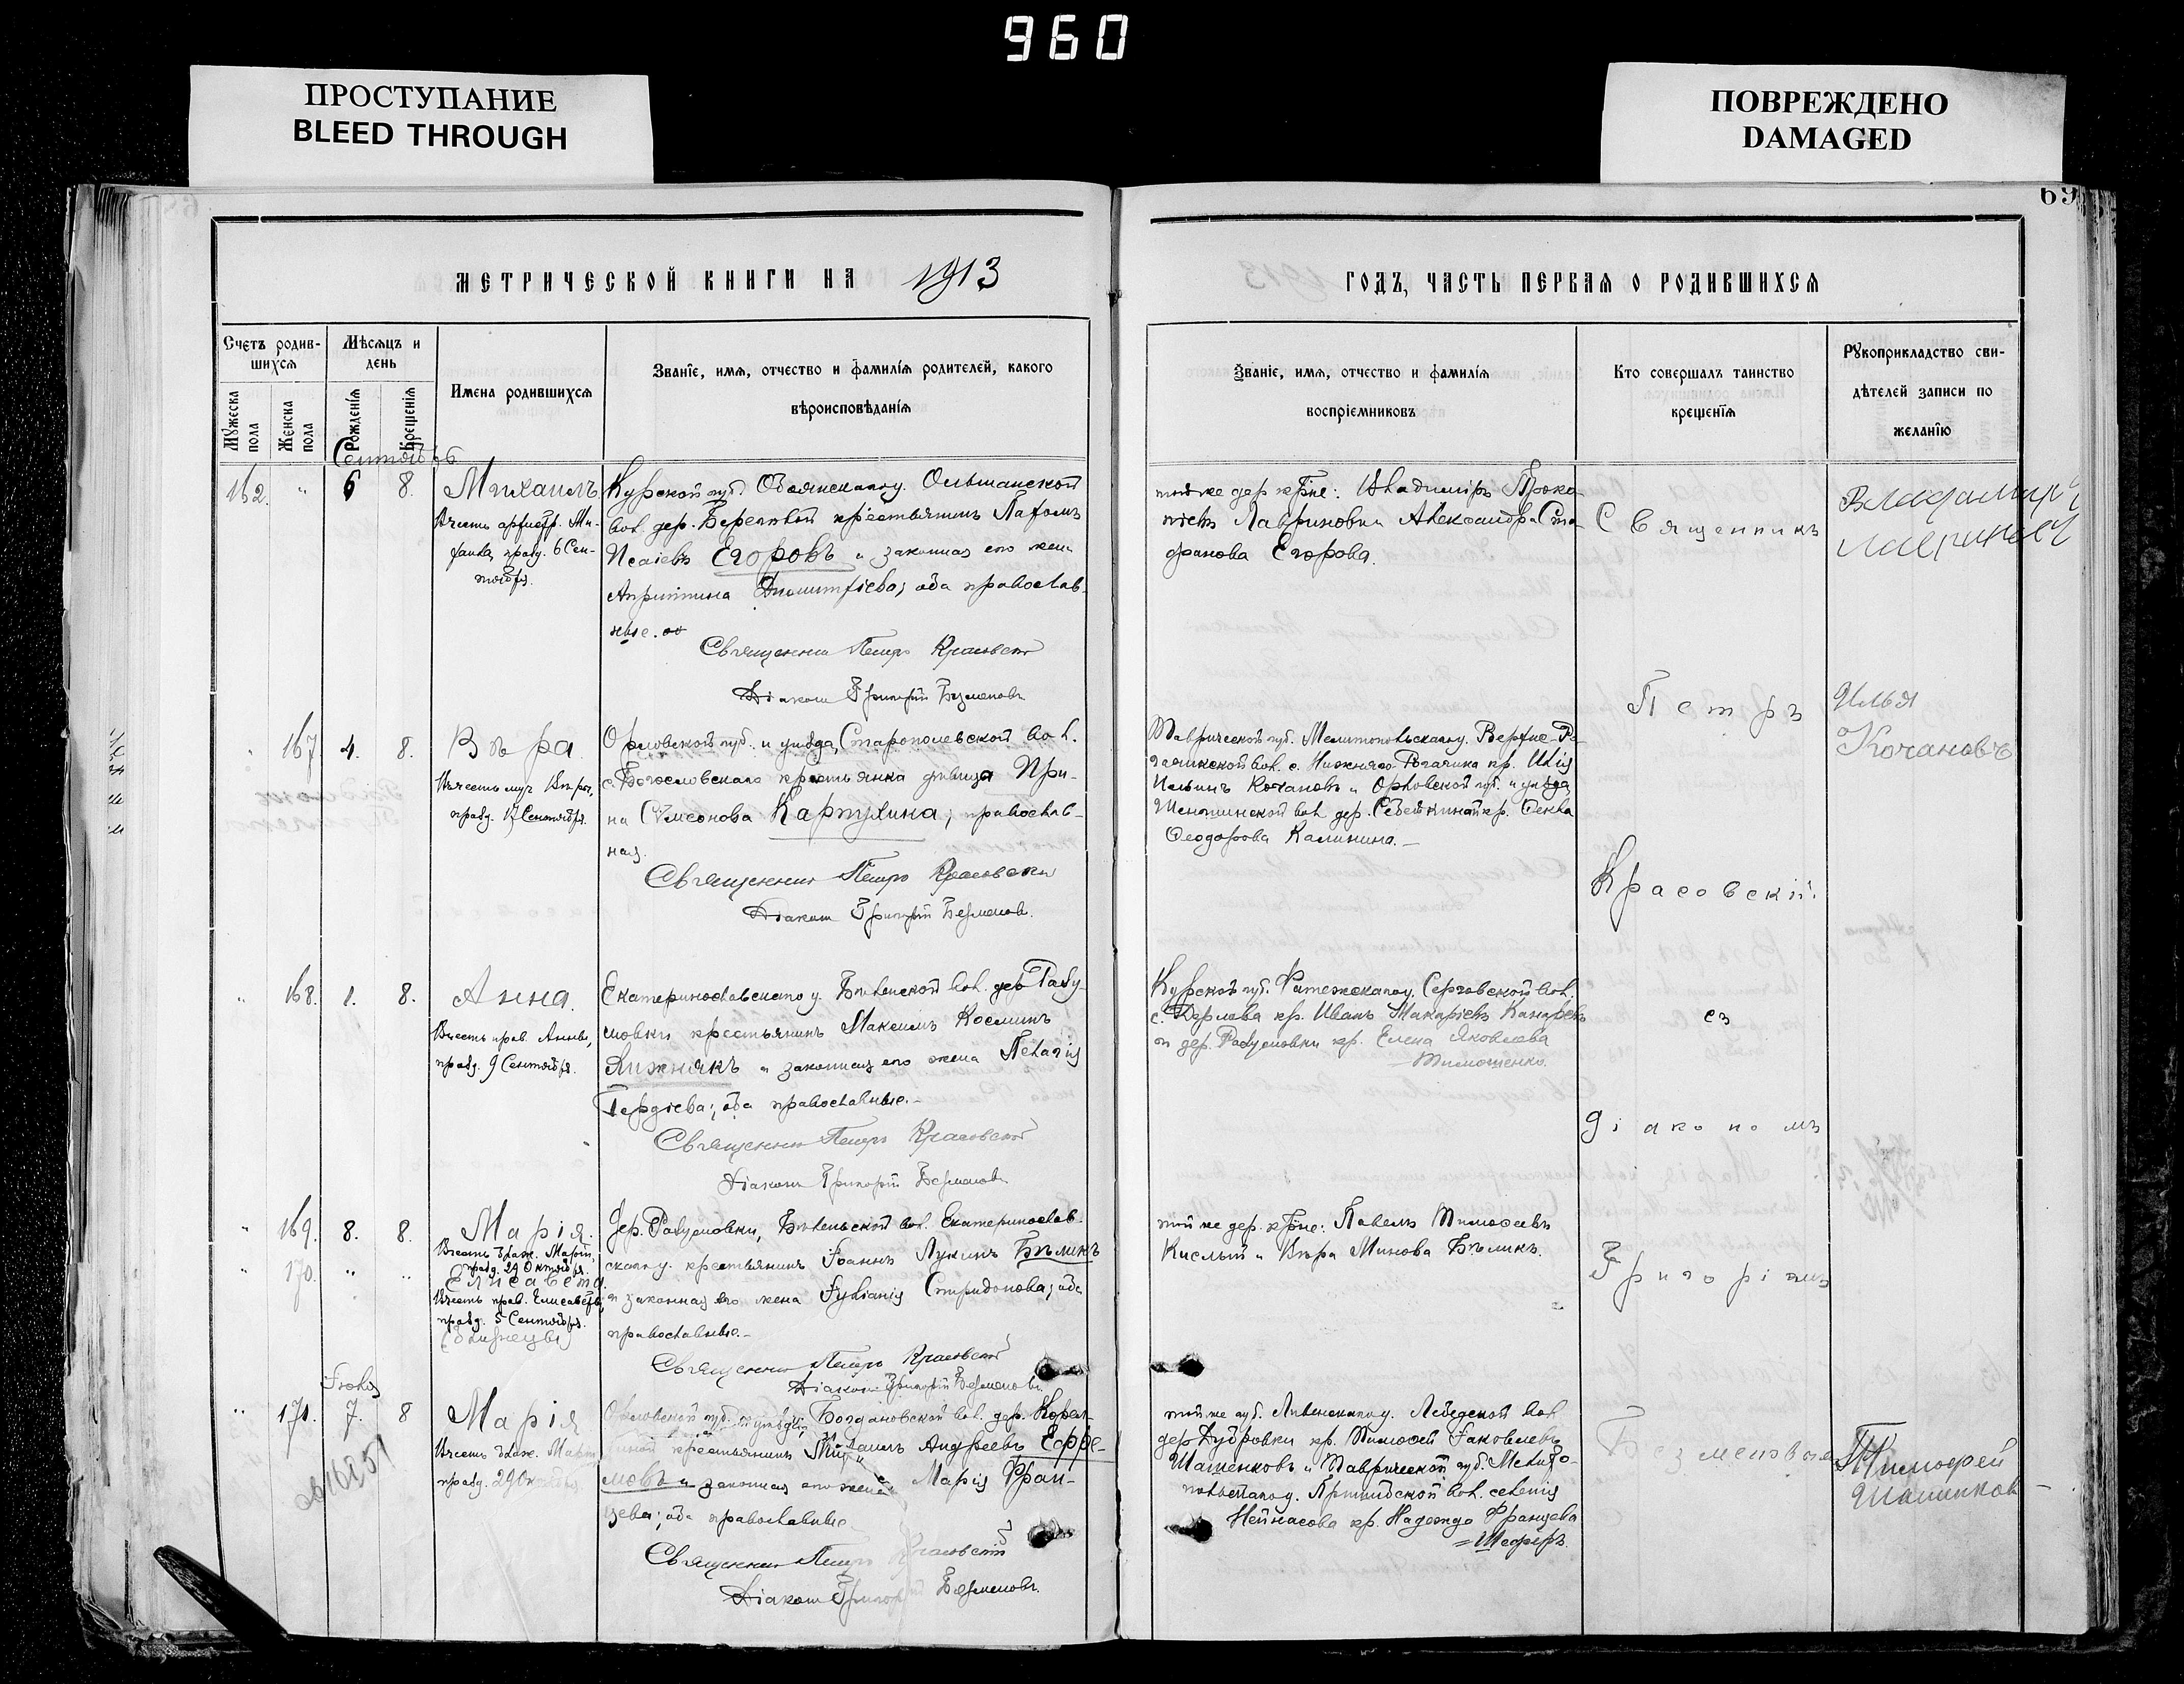 960
ПРОСТУПАНИЕ
BLEED THROUGH
ПОВРЕЖДЕНО
DAMAGED
69
МЕТРИЧЕСКОЙ КНИГИ НА 1913
ГОДЪ, ЧАСТЬ ПЕРВАЯ О РОДИВШИХСЯ
Счетъ родив-
шихся
Мужеска пола
Женска пола
Мѣсяцъ и
день
Рожденія
Крещенія
Имена родившихся
Званіе, имя, отчество и фамилія родителей, какого
вѣроисповѣданія
Званіе, имя, отчество и фамилія
воспріемниковъ
Кто совершалъ таинство
крещенія
Рукоприкладство сви-
дѣтелей записи по
желанію
Сентябрь
162. " 6 8. Михаилъ
Въ честь
празд. 6 Сен-
тября.
Курской губ. Обоянскаго у. Ольшанской
вол. дер. Березовой крестьянинъ
Исаіевъ Егоровъ и законная его жена
Димитріева; оба православ-
ные.
Священникъ Петръ Красовскій
Діаконъ Григорій Безменовъ
той же дер. кр-не: Владиміръ Проко-
піевъ Лавриновъ и Александра Ста-
Егорова.
Владимиръ
Лавриновъ
" 167. 4. 8. Вѣра
Въ честь муч. Вѣры,
празд. 17 Сентября.
Орловской губ. и уѣзда, вол.
с. Богословскаго крестьянка дѣвица Ири-
на Симеонова Картухина; православ-
ная.
Священникъ Петръ Красовскій
Діаконъ Григорій Безменовъ.
Таврической губ. Мелитопольскаго у. Верхне-Ро-
гачикской вол. с. Нижняго Рогачика кр. Илія
Ильинъ Кочановъ и Орловской губ. и уѣзда,
вол. дер. кр. Ѳекла
Ѳеодорова Калинина.–
Илья
Кочановъ
" 168. 1. 8. Анна
Въ честь прав. Анны,
празд. 9 Сентября.
Екатеринославскаго у. Бѣленской вол. дер. Разу-
мовки крестьянинъ Максимъ Косминъ
Лижнякъ и законная его жена Пелагія
Гордіева; оба православные.–
Священникъ Петръ Красовскій
Діаконъ Григорій Безменовъ
Курской губ. Фатежскаго у. Сергѣевской вол.
с. кр. Иванъ Макаріевъ
и дер. Разумовки кр. Елена Яковлева
Тимошенко.
" 169. 8. 8. Марія.
Въ честь блаж. Маріи,
празд. 29 Октября.
" 170. " " Елисавета.
Въ честь прав. Елисаветы,
празд. 5 Сентября.
(близнецы)
Дер. Разумовки, Бѣленской вол. Екатеринослав-
скаго у. крестьянинъ Іоаннъ Лукинъ Бѣликъ
и законная его жена Іуліанія Спиридонова; оба
православные.–
Священникъ Петръ Красовскій
Діаконъ Григорій Безменовъ
той же дер. кр-не: Павелъ Тимоѳеевъ
Кислый и Вѣра Минова Бѣликъ.
Іюля
" 171. 7. 8 Марія
Въ честь блаж. Маріи
празд. 29 Октября
Орловской губ. и уѣзда, Богдановской вол. дер.
крестьянинъ Михаилъ Андреевъ Ефре-
мовъ и законная его жена Марія Фран-
цева; оба православные
Священникъ Петръ Красовскій
Діаконъ Григорій Безменовъ.
той же губ. Ливенскаго у. вол.
дер. Дубровки кр. Тимоѳей Іаковлевъ
Шашенковъ и Таврической губ. Мелито-
польскаго у. вол. селенія
кр. Надежда Францева
=Шеферъ.
Тимофей
Шашенков
Священникъ
Петръ
Красовскій
съ
діакономъ
Григоріемъ
Безменовымъ